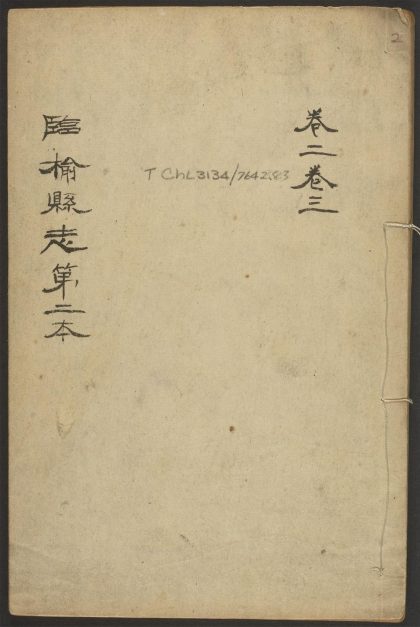 卷二卷三
臨榆縣志第二本
T ChL 3134/7642.83
2